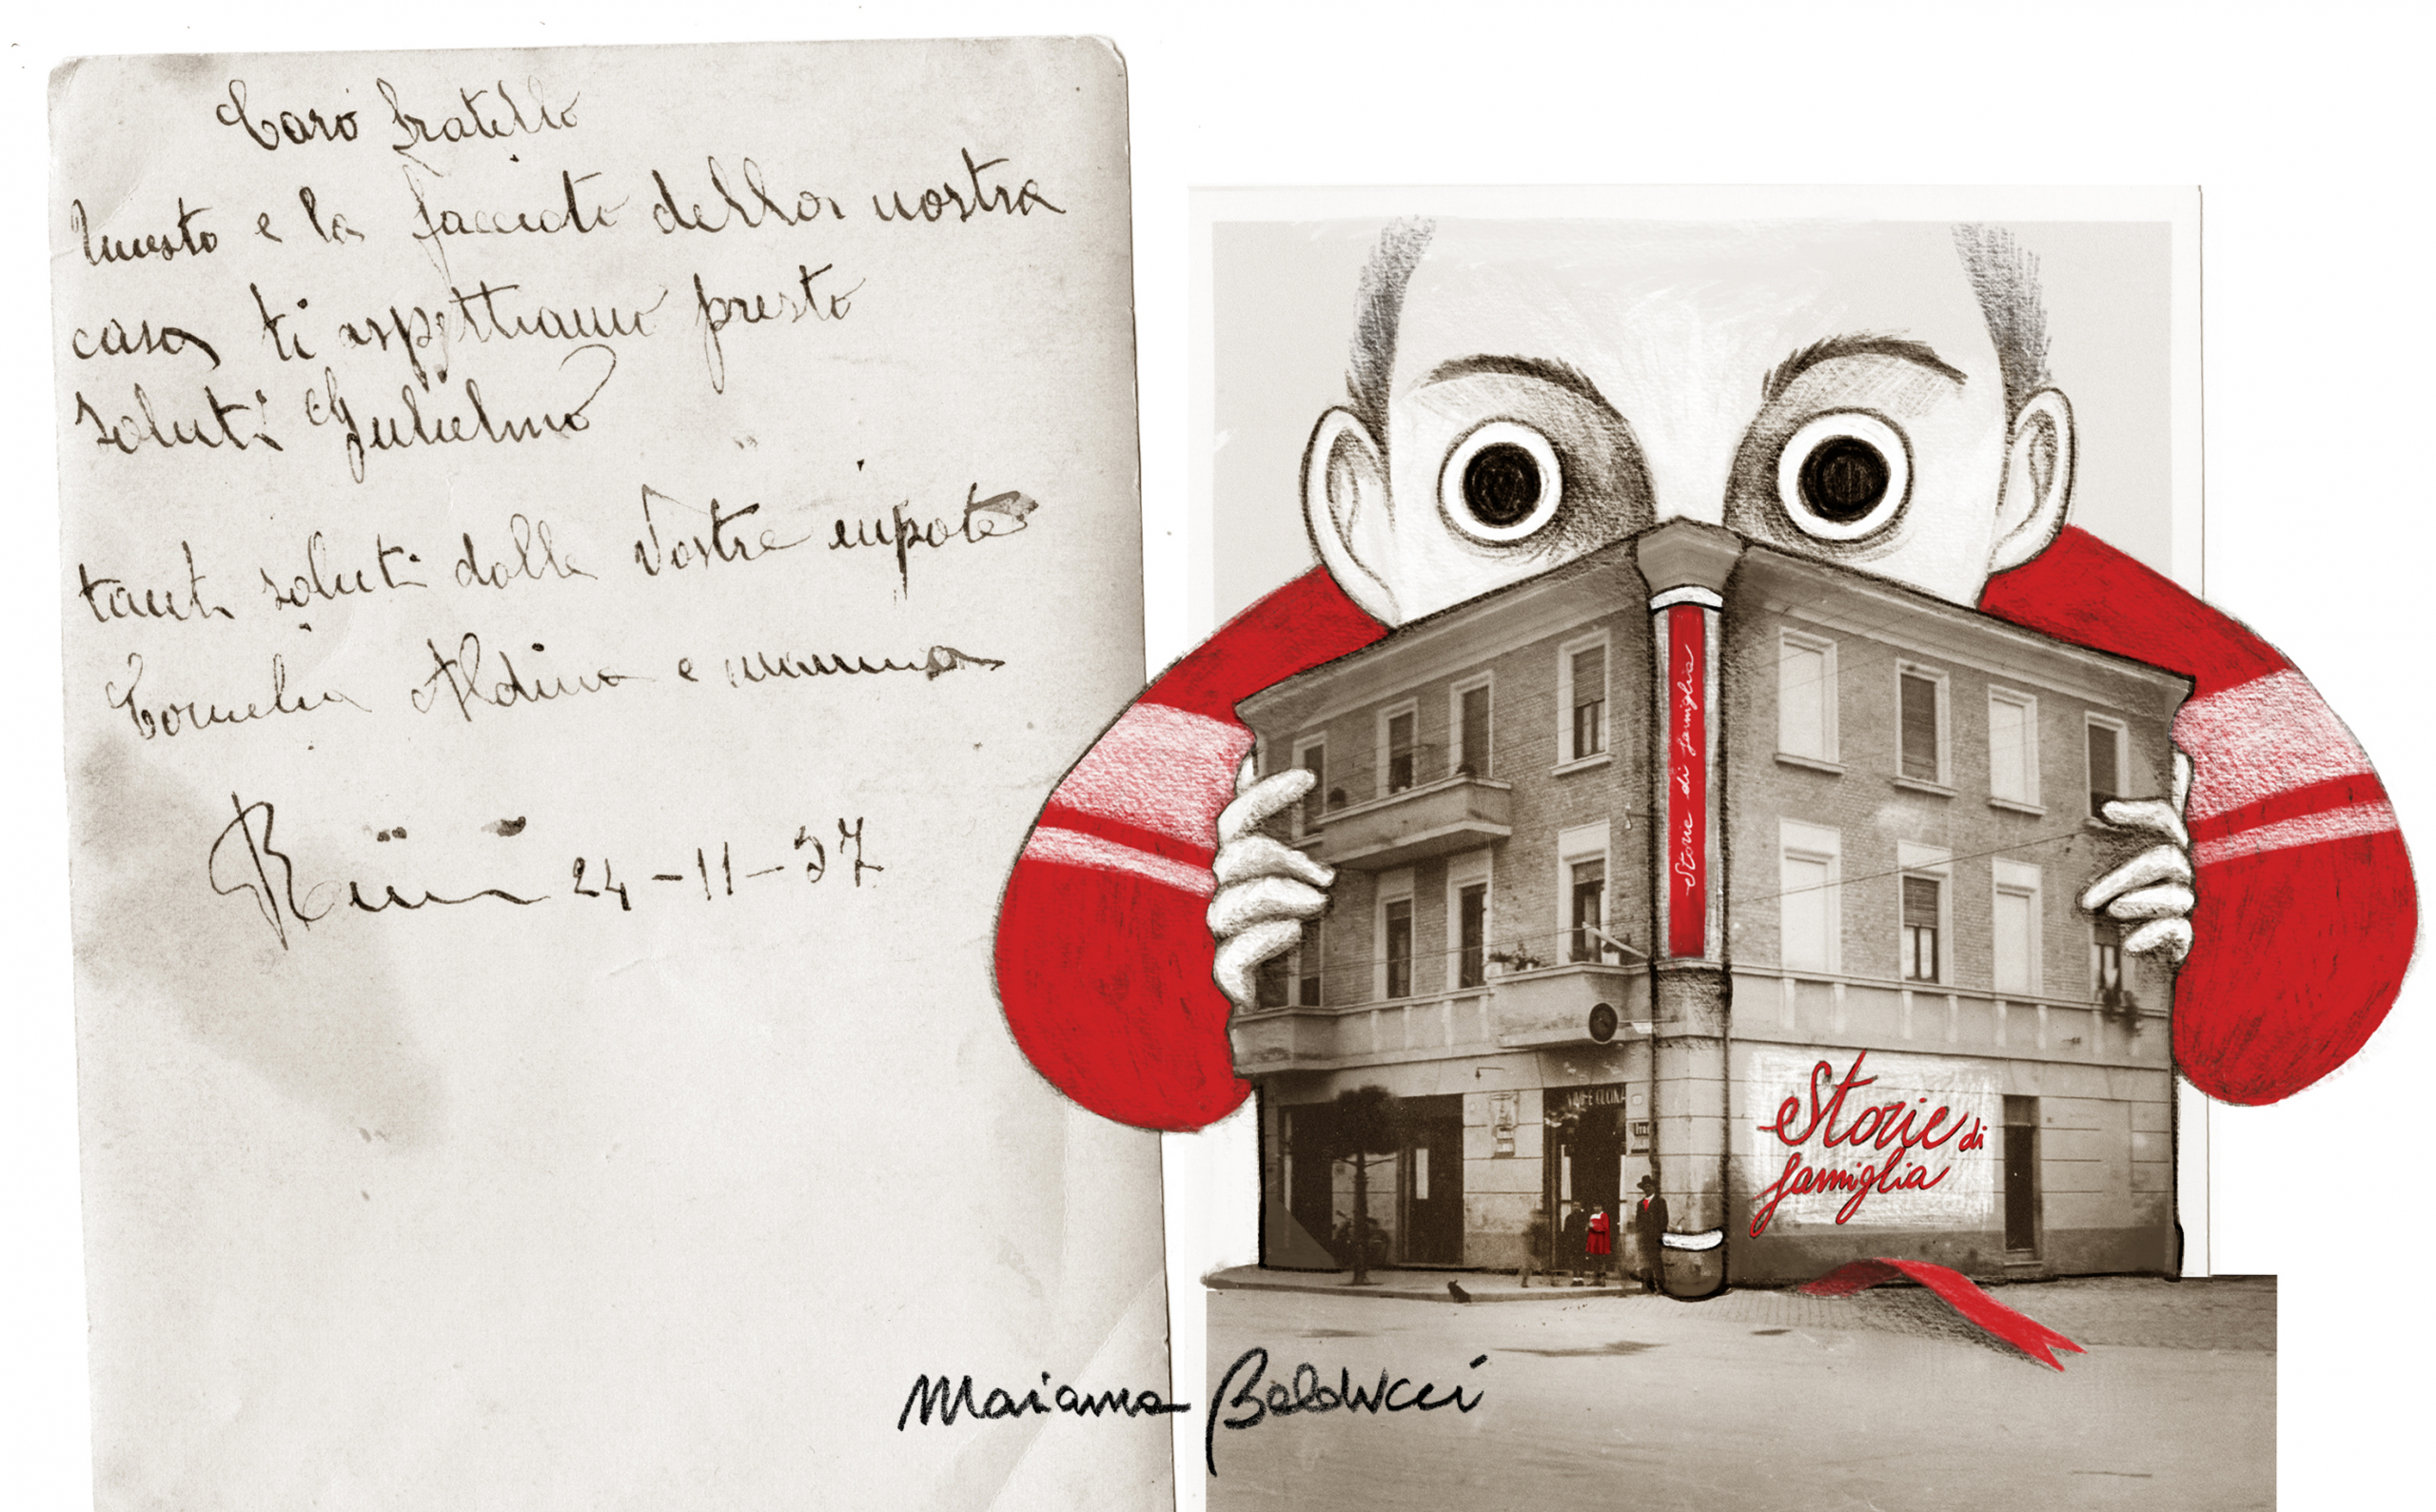 Caro fratello
Questo e la facciata della nostra
casa ti aspettiamo presto
saluti Gulielmo
tanti saluti dalle Vostre nipote
Cornelia Aldina e mamma
24-11-37
Storie di famiglia
VINI E CUCINA
Storie di
famiglia
Marianna Balducci